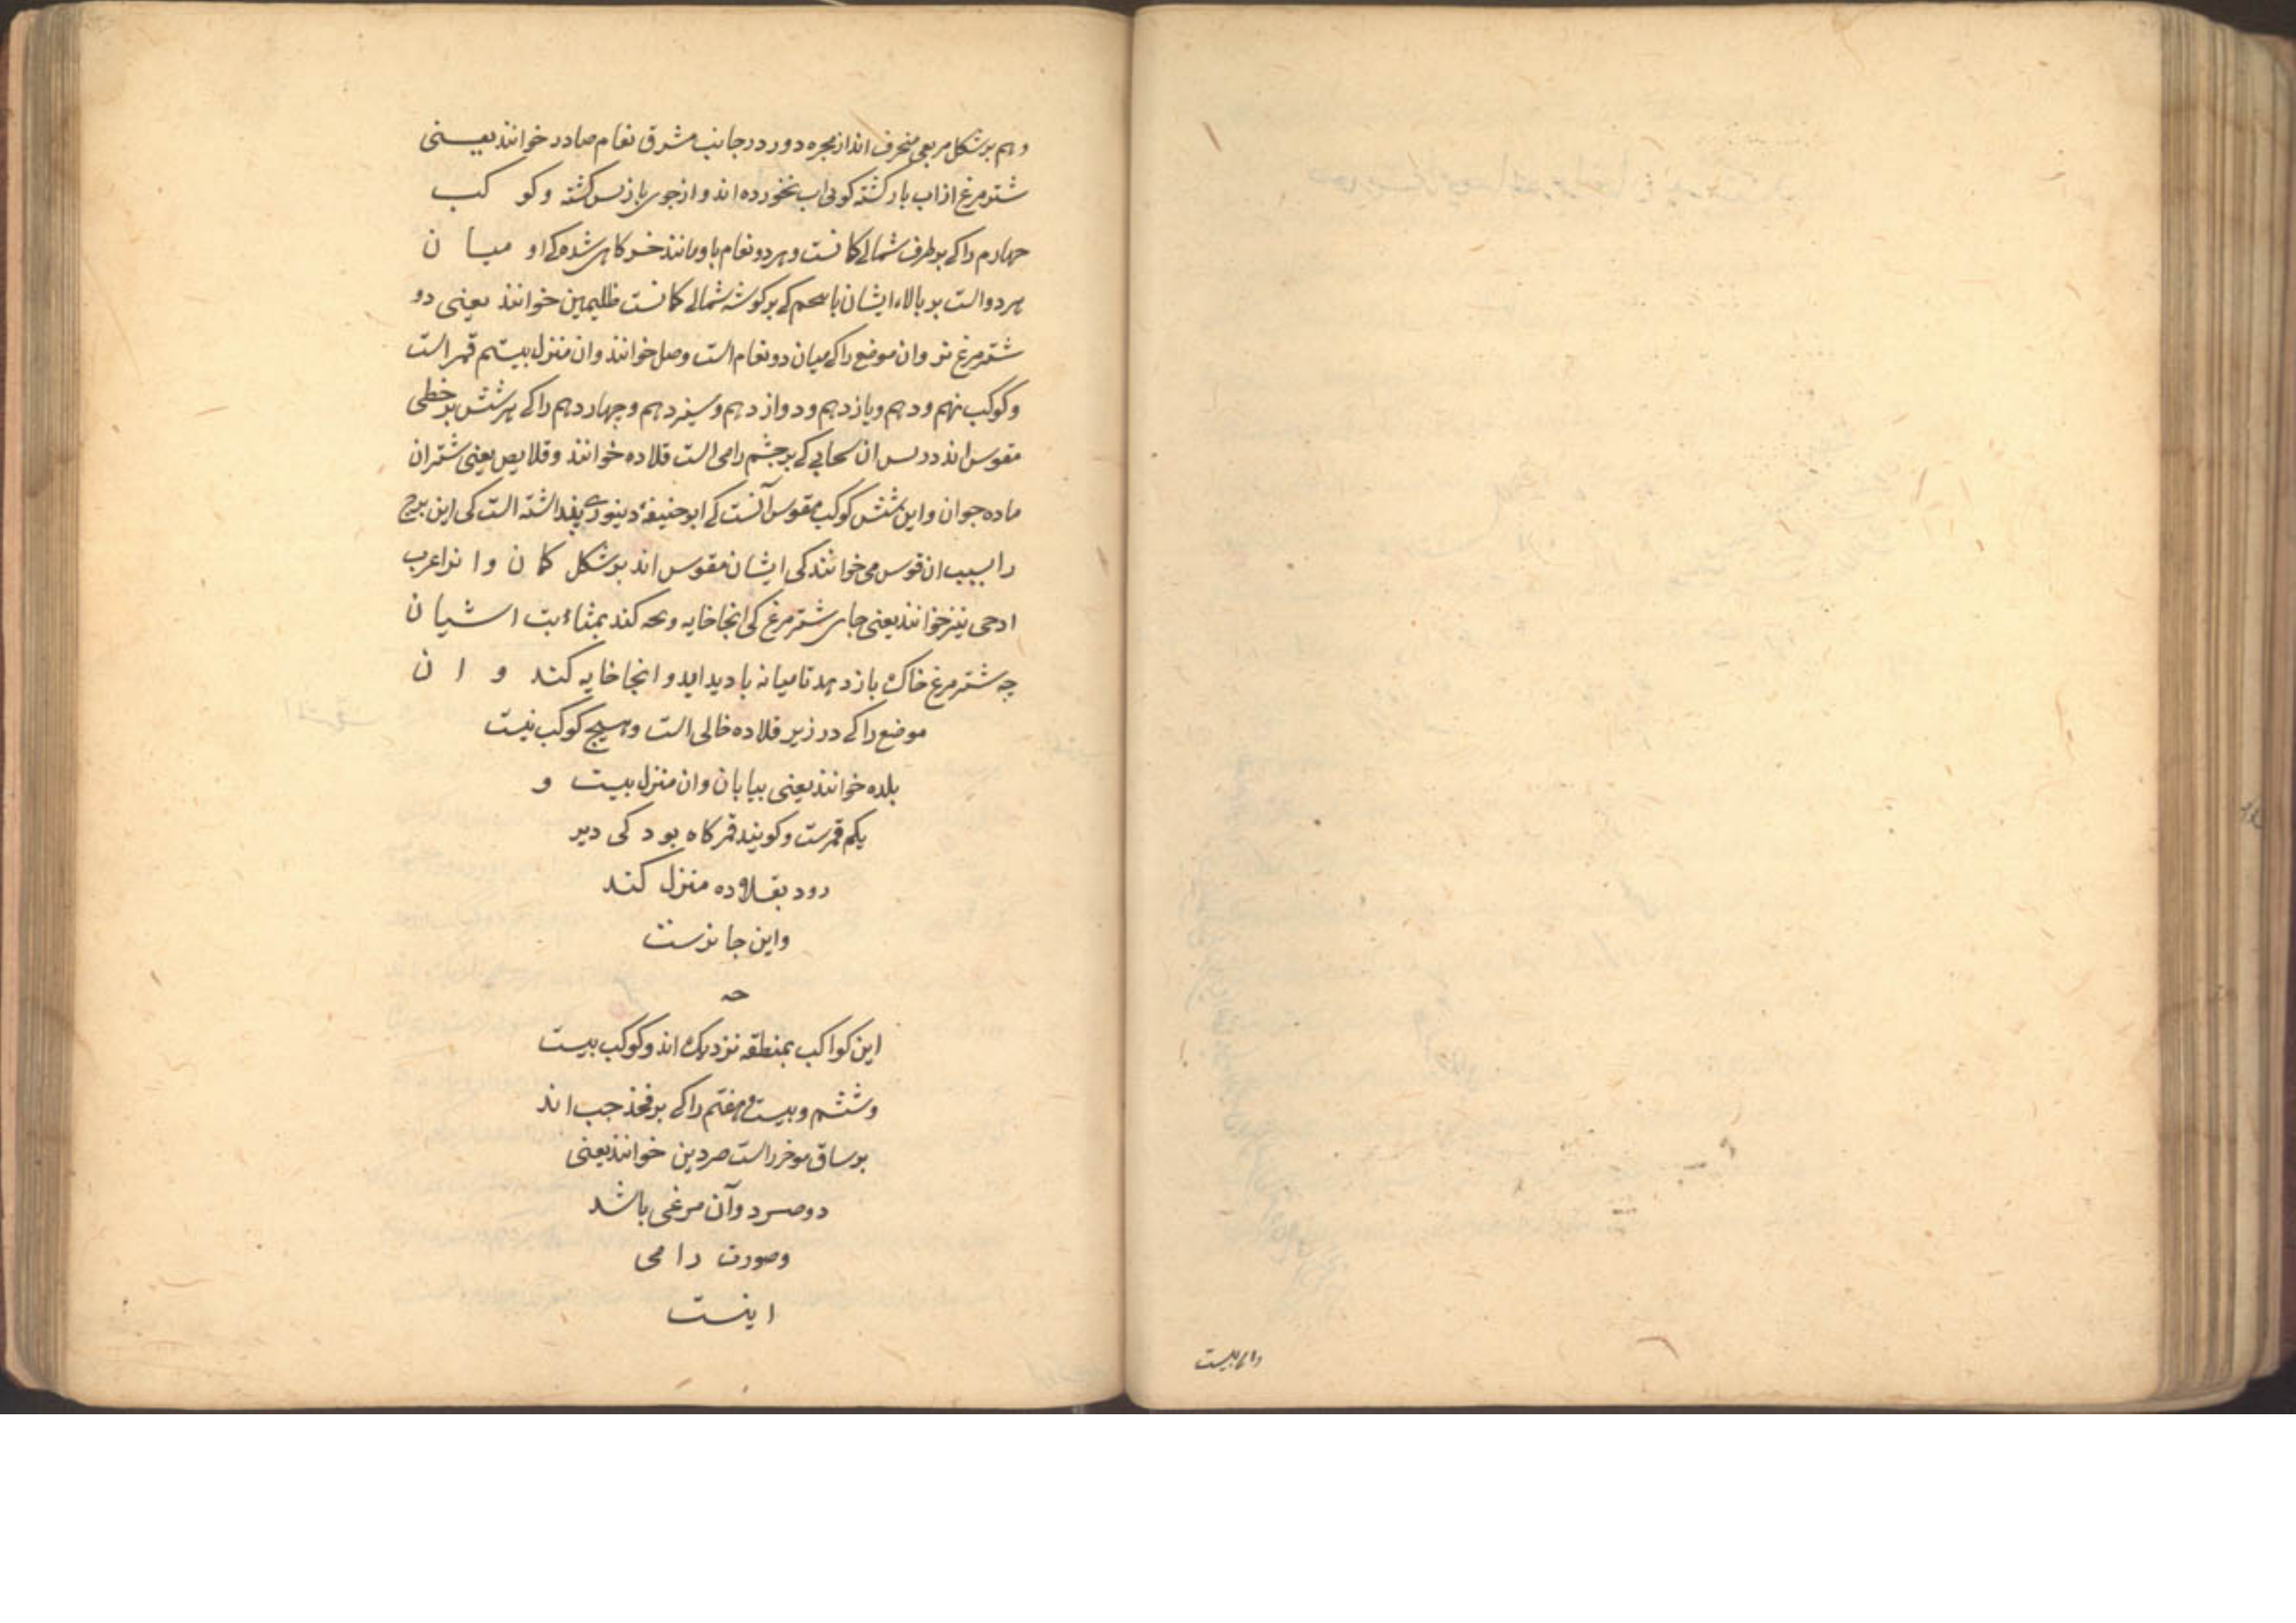 وهم بر شکل مربعی منحرف اند از مجره دور در جانب مشرق نعام صادر خوانند یعنی
شترمرغ از اب باز کشته کویی اب بخورده اند و از جوی باز پس کشته و کو کب
چهارم را کی بر طرف شمالی کمانست و هر دو نعام با او مانند خرکاهی شده کی او میان
هر دو است بر بالاء ایشان با کی بر کوشه شمالی کمانست ظلیمین خوانند یعنی دو
شترمرغ نر و ان موضع را کی میان دو نعام است وصل خوانند و ان منزل بیستم قمر است
و کوکب نهم و دهم و یازدهم و دوازدهم و سیزدهم و چهاردهم را کی هر شش بر خطی
مقوس اند در پس ان سحابی کی بر چشم رامی است قلاده خوانند و قلایص یعنی شتران
ماده جوان و این شش کوکب مقوس آنست کی ابو حنیفۀ دینوری پنداشته است کی این برج
را بسبب ان قوس می خوانند کی ایشان مقوس اند بر شکل کمان و انرا عرب
ادحی نیز خوانند یعنی جای شترمرغ کی انجا خایه و بچه کند بمثابت اشیان
چه شترمرغ خاک باز دهد تا میانه با دید اید و انجا خایه کند و ان
موضع را کی در زیر قلاده خالی است و هیچ کوکب نیست
بلده خوانند یعنی بیابان و ان منزل بیست و
یکم قمرست و کویند قمر کاه بود کی دیر
رود بقلاده منزل کند
و این جا نزست
حه
این کواکب بمنطقه نزدیک اند و کوکب بیست
و ششم و بیست و هفتم را کی بر فخذ چپ اند
بر ساق موخر راست صردین خوانند یعنی
دو صرد و آن مرغی باشد
و صورت رامی
اینست